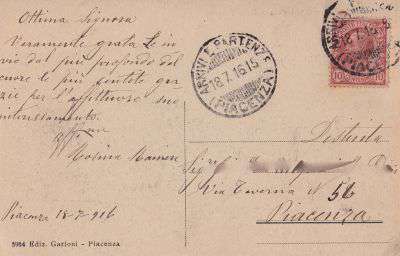 Ottima Signora
Veramente grata le in-
vio dal più profondo del
cuore le più sentite gra-
zie per l'affettuoso suo
interessamento.
Piacenza 18-7-916
5984 Ediz. Garioni - Piacenza
ARRIVI E PARTENZE
18.7.16.15
(PIACENZA)
Distinta
Via Taverna N 56
Piacenza